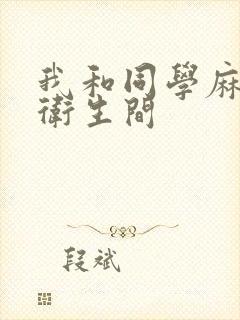 我和同學麻
衛生間
段斌